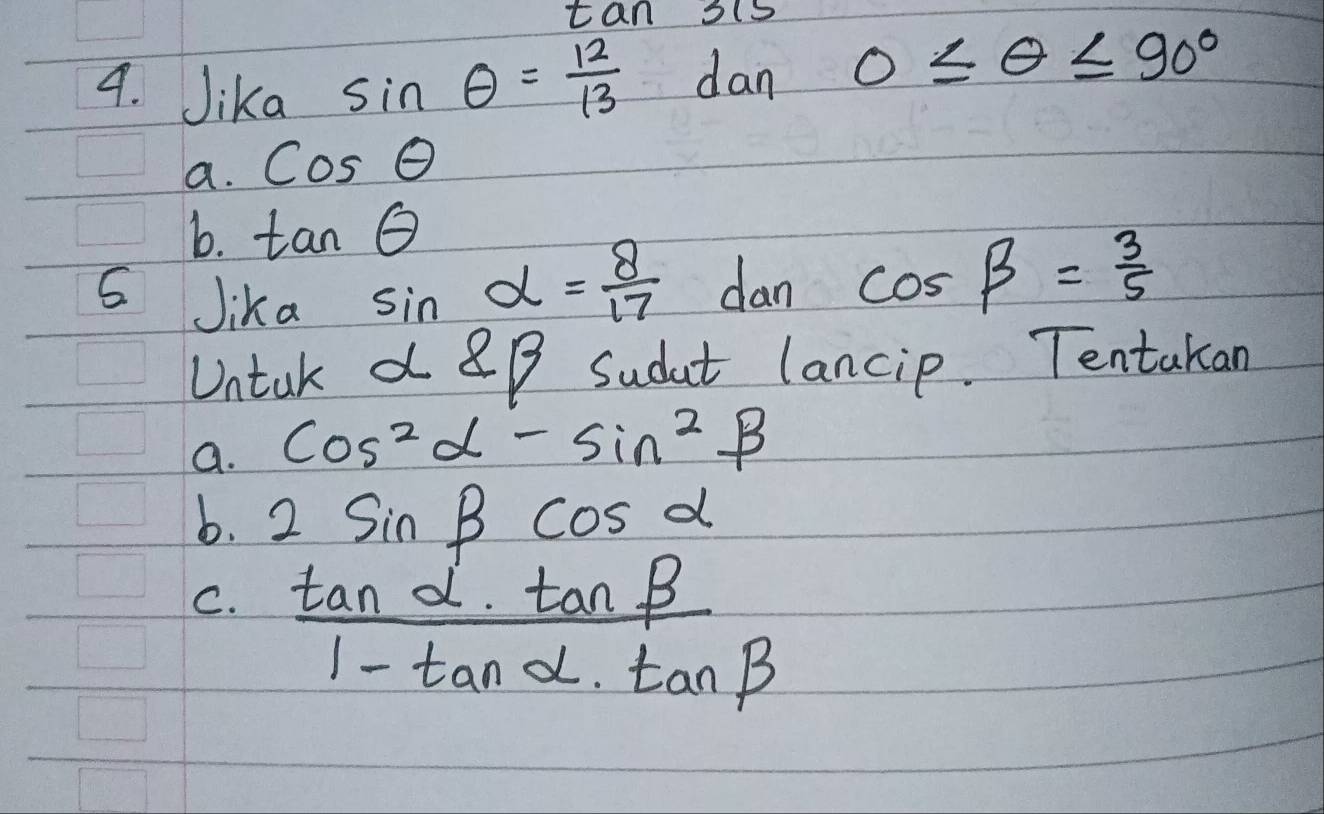 tan 315
4. Jika sin θ = 12/13 dan 0 ≤ θ ≤ 90°
a. Cos θ
b. tan θ
5 Jika sin α = 8/17 dan cos β = 3/5
Untuk α & β sudut lancip. Tentukan
a. Cos² α - sin² β
b. 2 Sin β cos α
c. tan α . tan β
1 - tan α . tan β